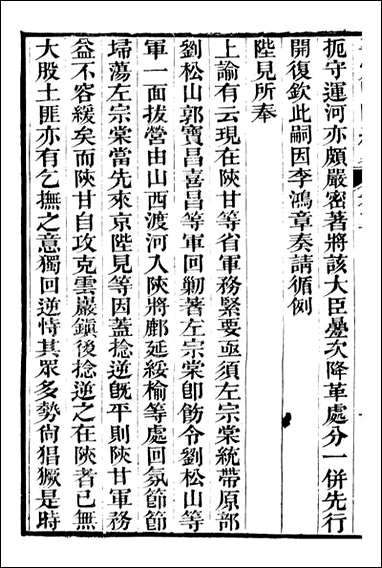 扼守運河亦頗嚴密著將該大臣曡次降革處分一併先行
開復欽此嗣因李鴻章奏請循例
陛見所奉
上諭有云現在陝甘等省軍務緊要亟須左宗棠統帶原部
劉松山郭寶昌喜昌等軍回勦著左宗棠卽飭令劉松山等
軍一面拔營由山西渡河入陝將鄜延綏榆等處回氛節節
埽蕩左宗棠當先來京陛見等因蓋捻逆旣平則陝甘軍務
益不容緩矣而陝甘自攻克雲巖鎭後捻逆之在陝者已無
大股土匪亦有乞撫之意獨回逆恃其眾多勢尙猖獗是時